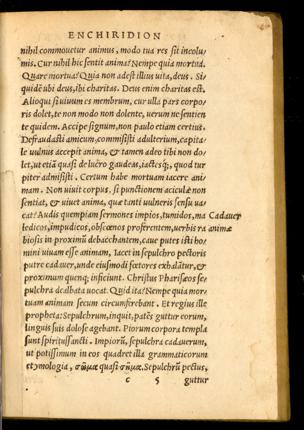 ENCHIRIDION
nihil commouetur animus, modo tua res sit incolu/
mis. Cur nihil hic sentit anima? Nempe quia mortua.
Quare mortua? Quia non adest illius uita, deus. Si/
quidē ubi deus, ibi charitas. Deus enim charitas est.
Alioqui si uiuum es membrum, cur ulla pars corpo/
ris dolet, te non modo non dolente, uerum ne sentien
te quidem. Accipe signum, non paulo etiam certius.
Defraudasti amicum, commisisti adulterium, capita/
le uulnus accepit anima, & tamen adeo tibi non do/
let, ut etiā quasi de lucro gaudeas, iactesq;, quod tur
piter admisisti. Certum habe mortuam iacere ani/
mam. Non uiuit corpus, si punctionem aciculę non
sentiat, & uiuet anima, quæ tanti uulneris sensu ua/
cat? Audis quempiam sermones impios, tumidos, ma
Cadauer
ledicos, impudicos, obscœnos proferentem, uerbis ra
animæ
biosis in proximū debacchantem, caue putes isti ho/
mini uiuam esse animam, Iacet in sepulchro pectoris
putre cadauer, unde eiusmodi fœtores exhalātur, &
proximum quenq; inficiunt. Christus Pharisæos se/
pulchra dealbata uocat. Quid ita? Nempe quia mor/
tuam animam secum circumferebant. Et regius ille
propheta: Sepulchrum, inquit, patēs guttur eorum,
linguis suis dolose agebant. Piorum corpora templa
sunt spiritussancti. Impiorū, sepulchra cadauerum,
ut potissimum in eos quadret illa grammaticorum
etymologia, σῶμα quasi σῆμα. Sepulchrū pectus,
c 5 guttur